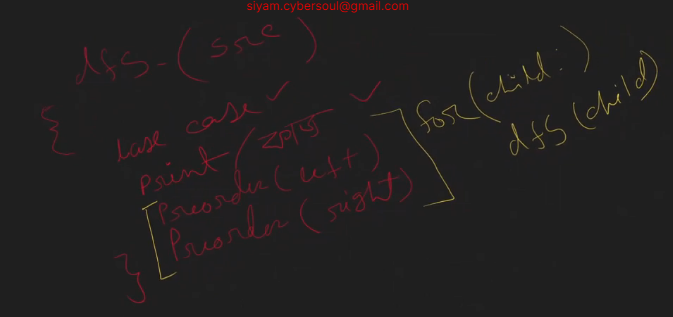 siyam.cybersoul@gmail.com
dfs-(src)
{
base case ✓
print( ✓
preorder(left)
Preorder(right)
}
for(child:
dfs(child)